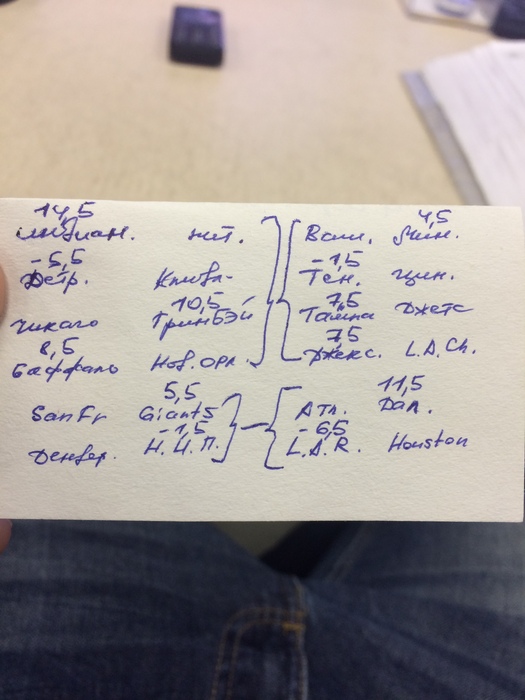 14,5 4,5
индиан. пит. Ваш. Мин.
-5,5 -1,5
Детр. Кливл- Тен. цин.
10,5 7,5
чикаго Грин Бэй Тампа Джетс
8,5 7,5
баффало Нов. орл. Джекс. L.A.Ch.
5,5 11,5
San Fr Giants Атл. Дал.
-1,5 -6,5
Денвер. Н.И.П. L.A.R. Houston